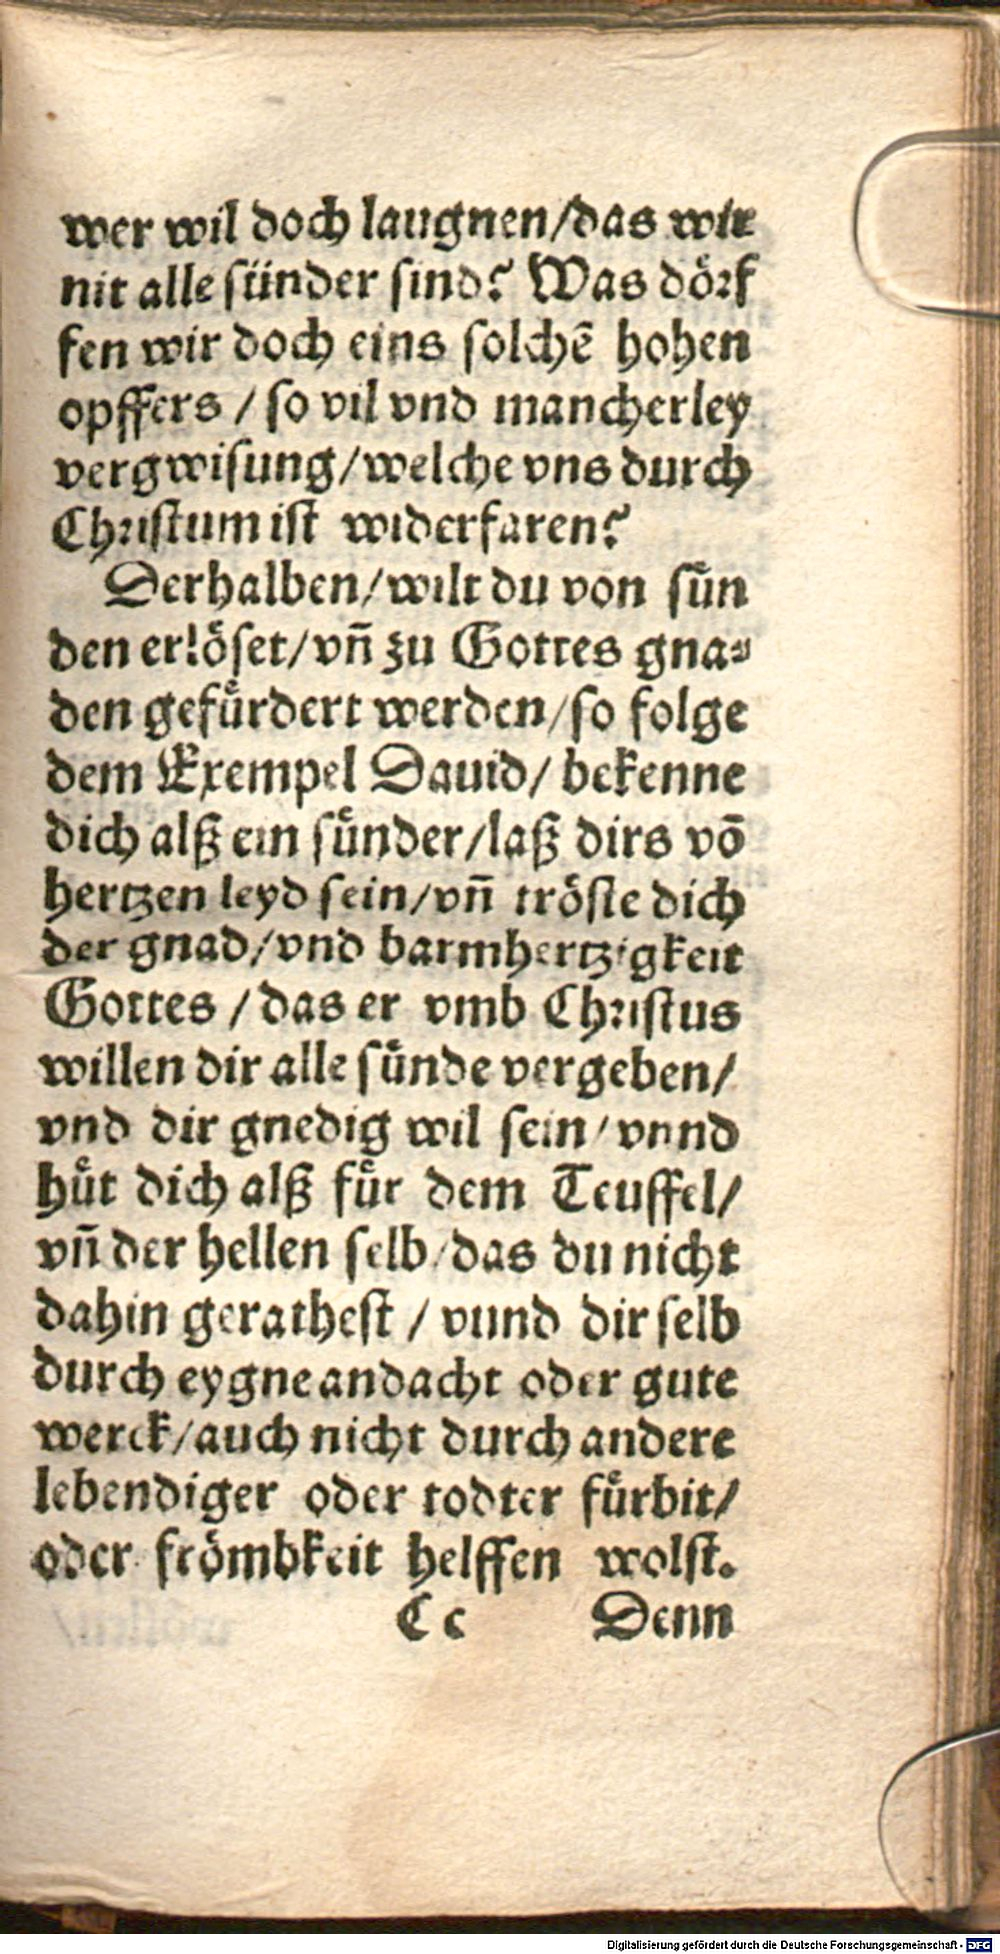 wer wil doch laugnen/das wir
nit alle sünder sind? Was dörf
fen wir doch eins solchē hohen
opffers / so vil vnd mancherley
vergwisung/welche vns durch
Christum ist widerfaren?
Derhalben/wilt du von sün
den erlöset/vn̄ zu Gottes gna⸗
den gefürdert werden/so folge
dem Exempel Dauid/ bekenne
dich alß ein sünder/laß dirs vō
hertzen leyd sein/vn̄ tröste dich
der gnad/vnd barmhertzigkeit
Gottes / das er vmb Christus
willen dir alle sünde vergeben/
vnd dir gnedig wil sein/vnnd
hüt dich alß für dem Teuffel/
vn̄ der hellen selb/das du nicht
dahin gerathest / vnnd dir selb
durch eygne andacht oder gute
werck/auch nicht durch andere
lebendiger oder todter fürbit/
oder frömbkeit helffen wolst.
Cc Denn
Digitalisierung gefördert durch die Deutsche Forschungsgemeinschaft - DFG